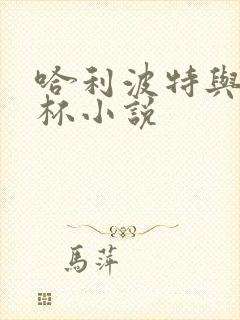 哈利波特與
杯小說
馬萍